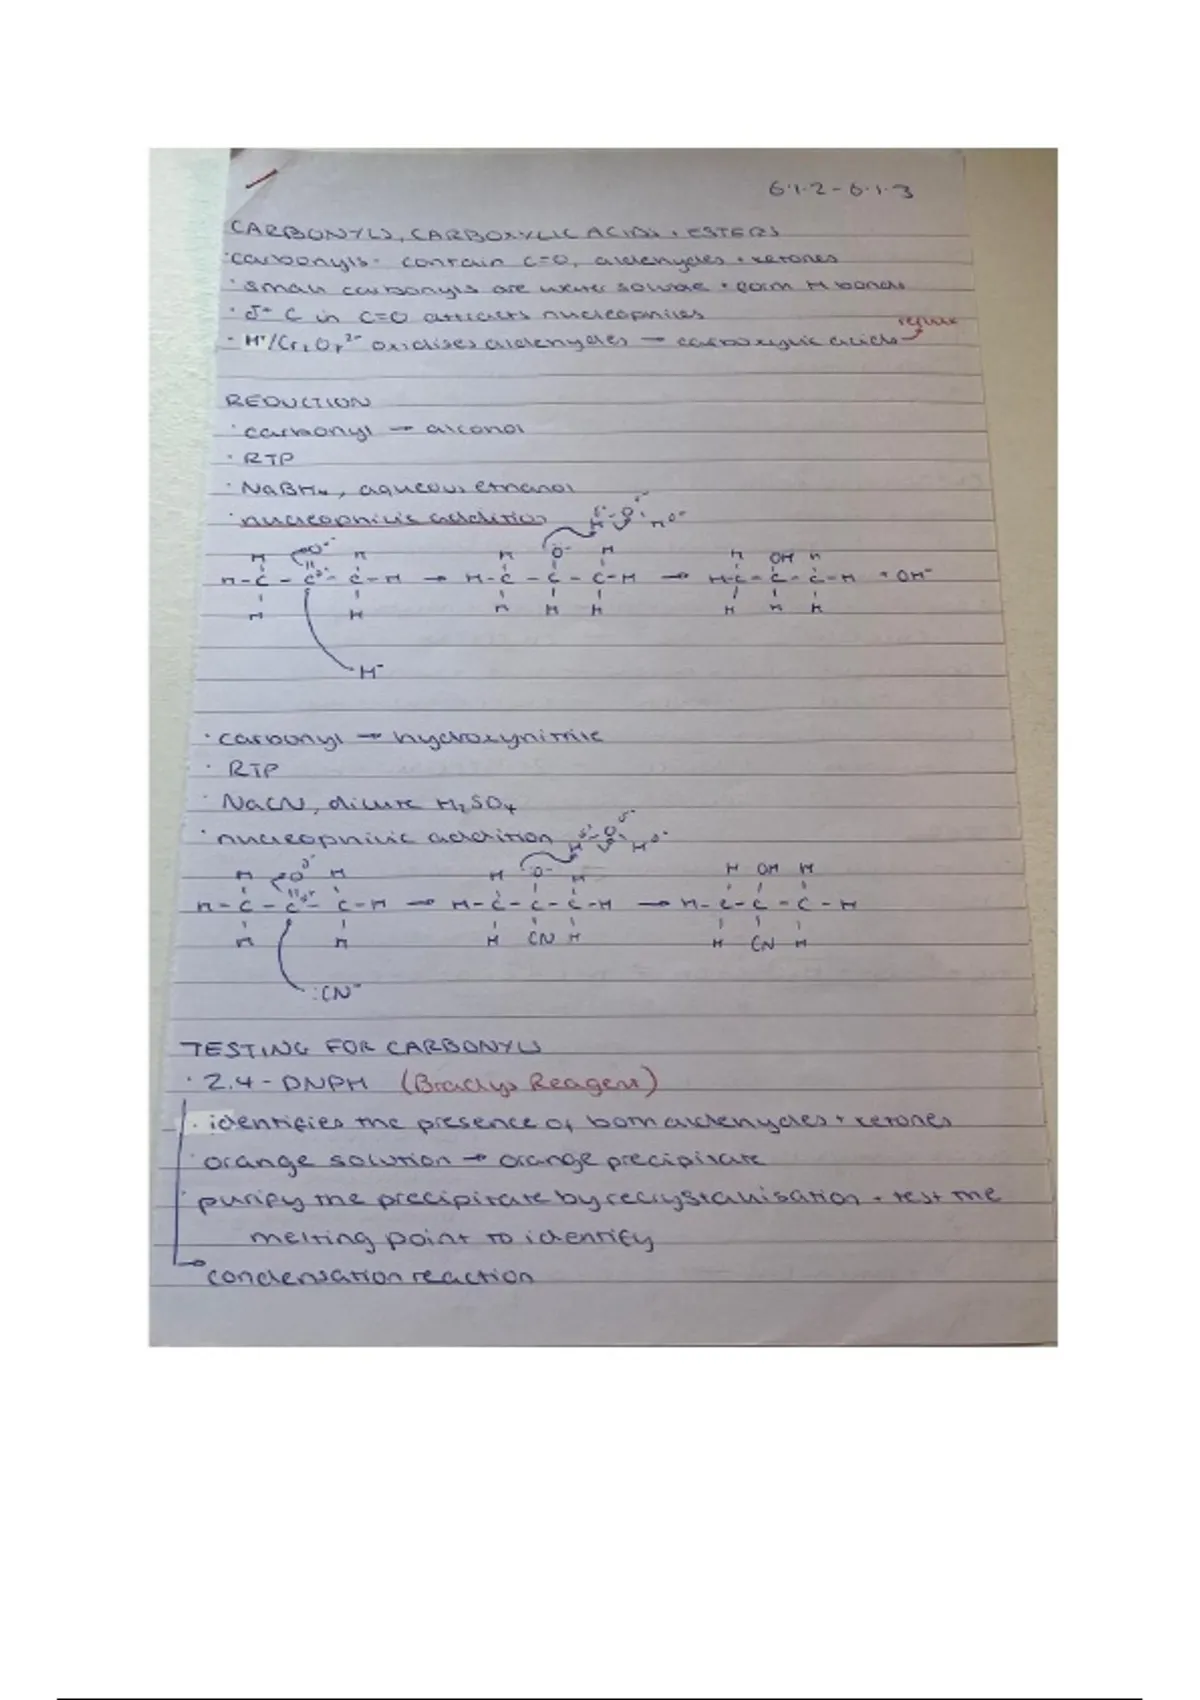 6.1.2-6.1.3
CARBONYLS, CARBOXYLIC ACIDS + ESTERS
·carbonyls- contain C=O, aldehydes + ketones
·small carbonyls are water soluble + form H bonds
·δ+ C in C=O attracts nucleophiles
reflux
·H⁺/Cr₂O₇²⁻ oxidises aldehydes → carboxylic acids
REDUCTION
·carbonyl → alcohol
·RTP
·NaBH₄, aqueous ethanol
·nucleophilic addition δ+ H-O δ- H δ+
H O δ- H H O- H H OH H
H-C-C δ+-C-H → H-C-C-C-H → H-C-C-C-H + OH⁻
H H H H H H H H
H⁻
·carbonyl → hydroxynitrile
·RTP
·NaCN, dilute H₂SO₄
·nucleophilic addition δ+ H-O δ- H δ+
H O δ- H H O- H H OH H
H-C-C δ+-C-H → H-C-C-C-H → H-C-C-C-H
H H H CN H H CN H
:CN⁻
TESTING FOR CARBONYLS
·2.4-DNPH (Bradys Reagent)
·identifies the presence of both aldehydes + ketones
·orange solution → orange precipitate
·purify the precipitate by recrystallisation + test the
melting point to identify
→condensation reaction